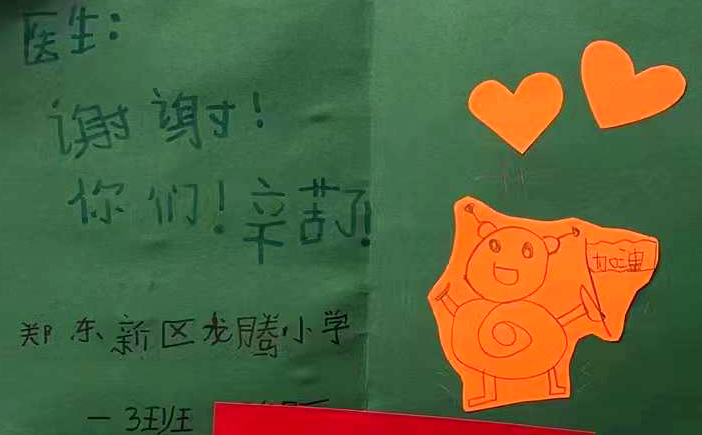 医生：
谢谢！
你们！辛苦了！
郑东新区龙腾小学
一3班
加油